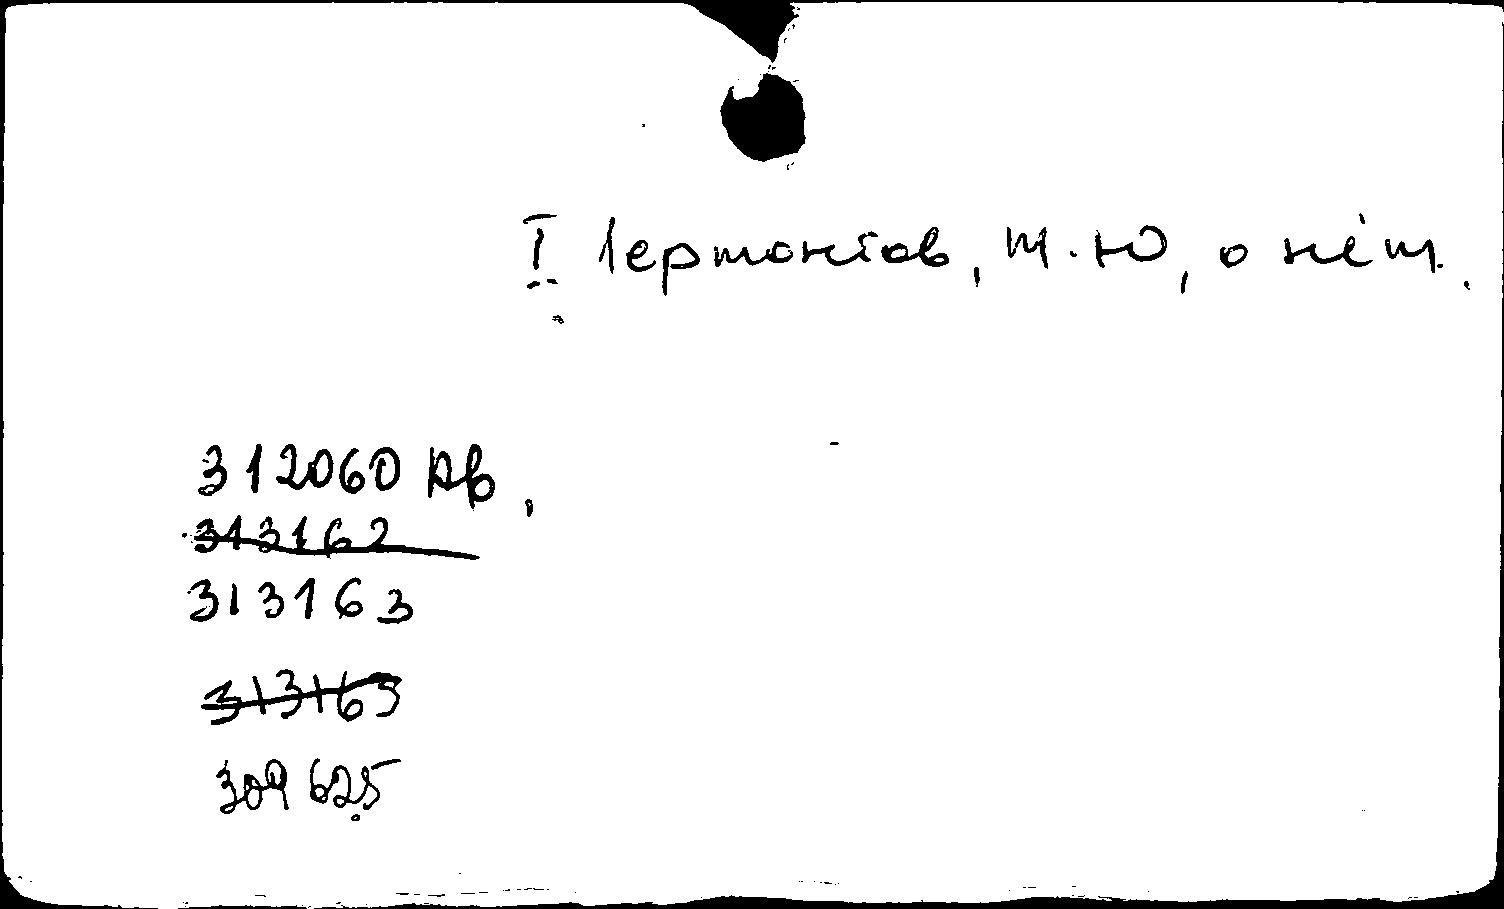 I Лермонтов, М.Ю, о нём.
312060 Дв,
313162
313163
313165
309625